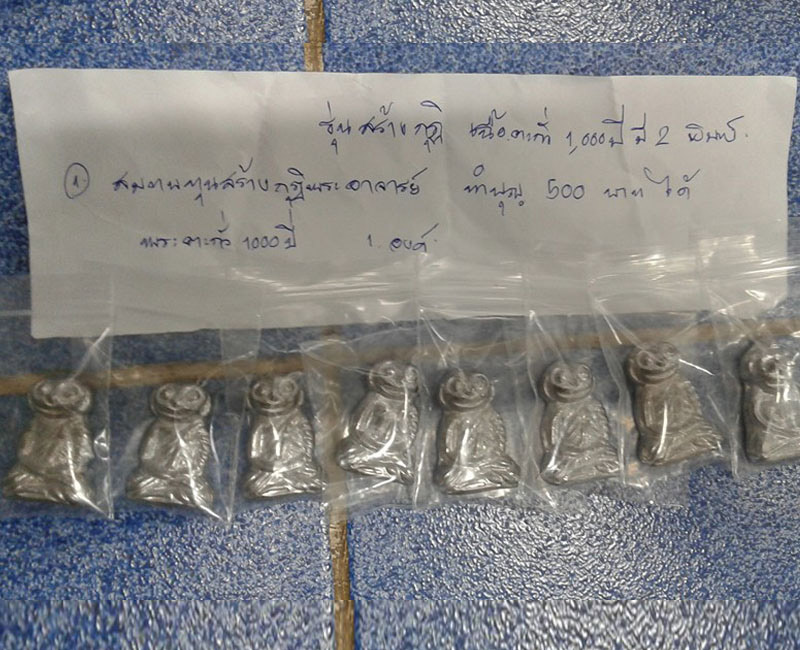 รุ่นสร้างกุฏิ เนื้อตะกั่ว 1,000 ปี มี 2 พิมพ์.
① สมทบทุนสร้างกุฏิพระอาจารย์ ทำบุญ 500 บาท ได้
พระตะกั่ว 1000 ปี 1. องค์.